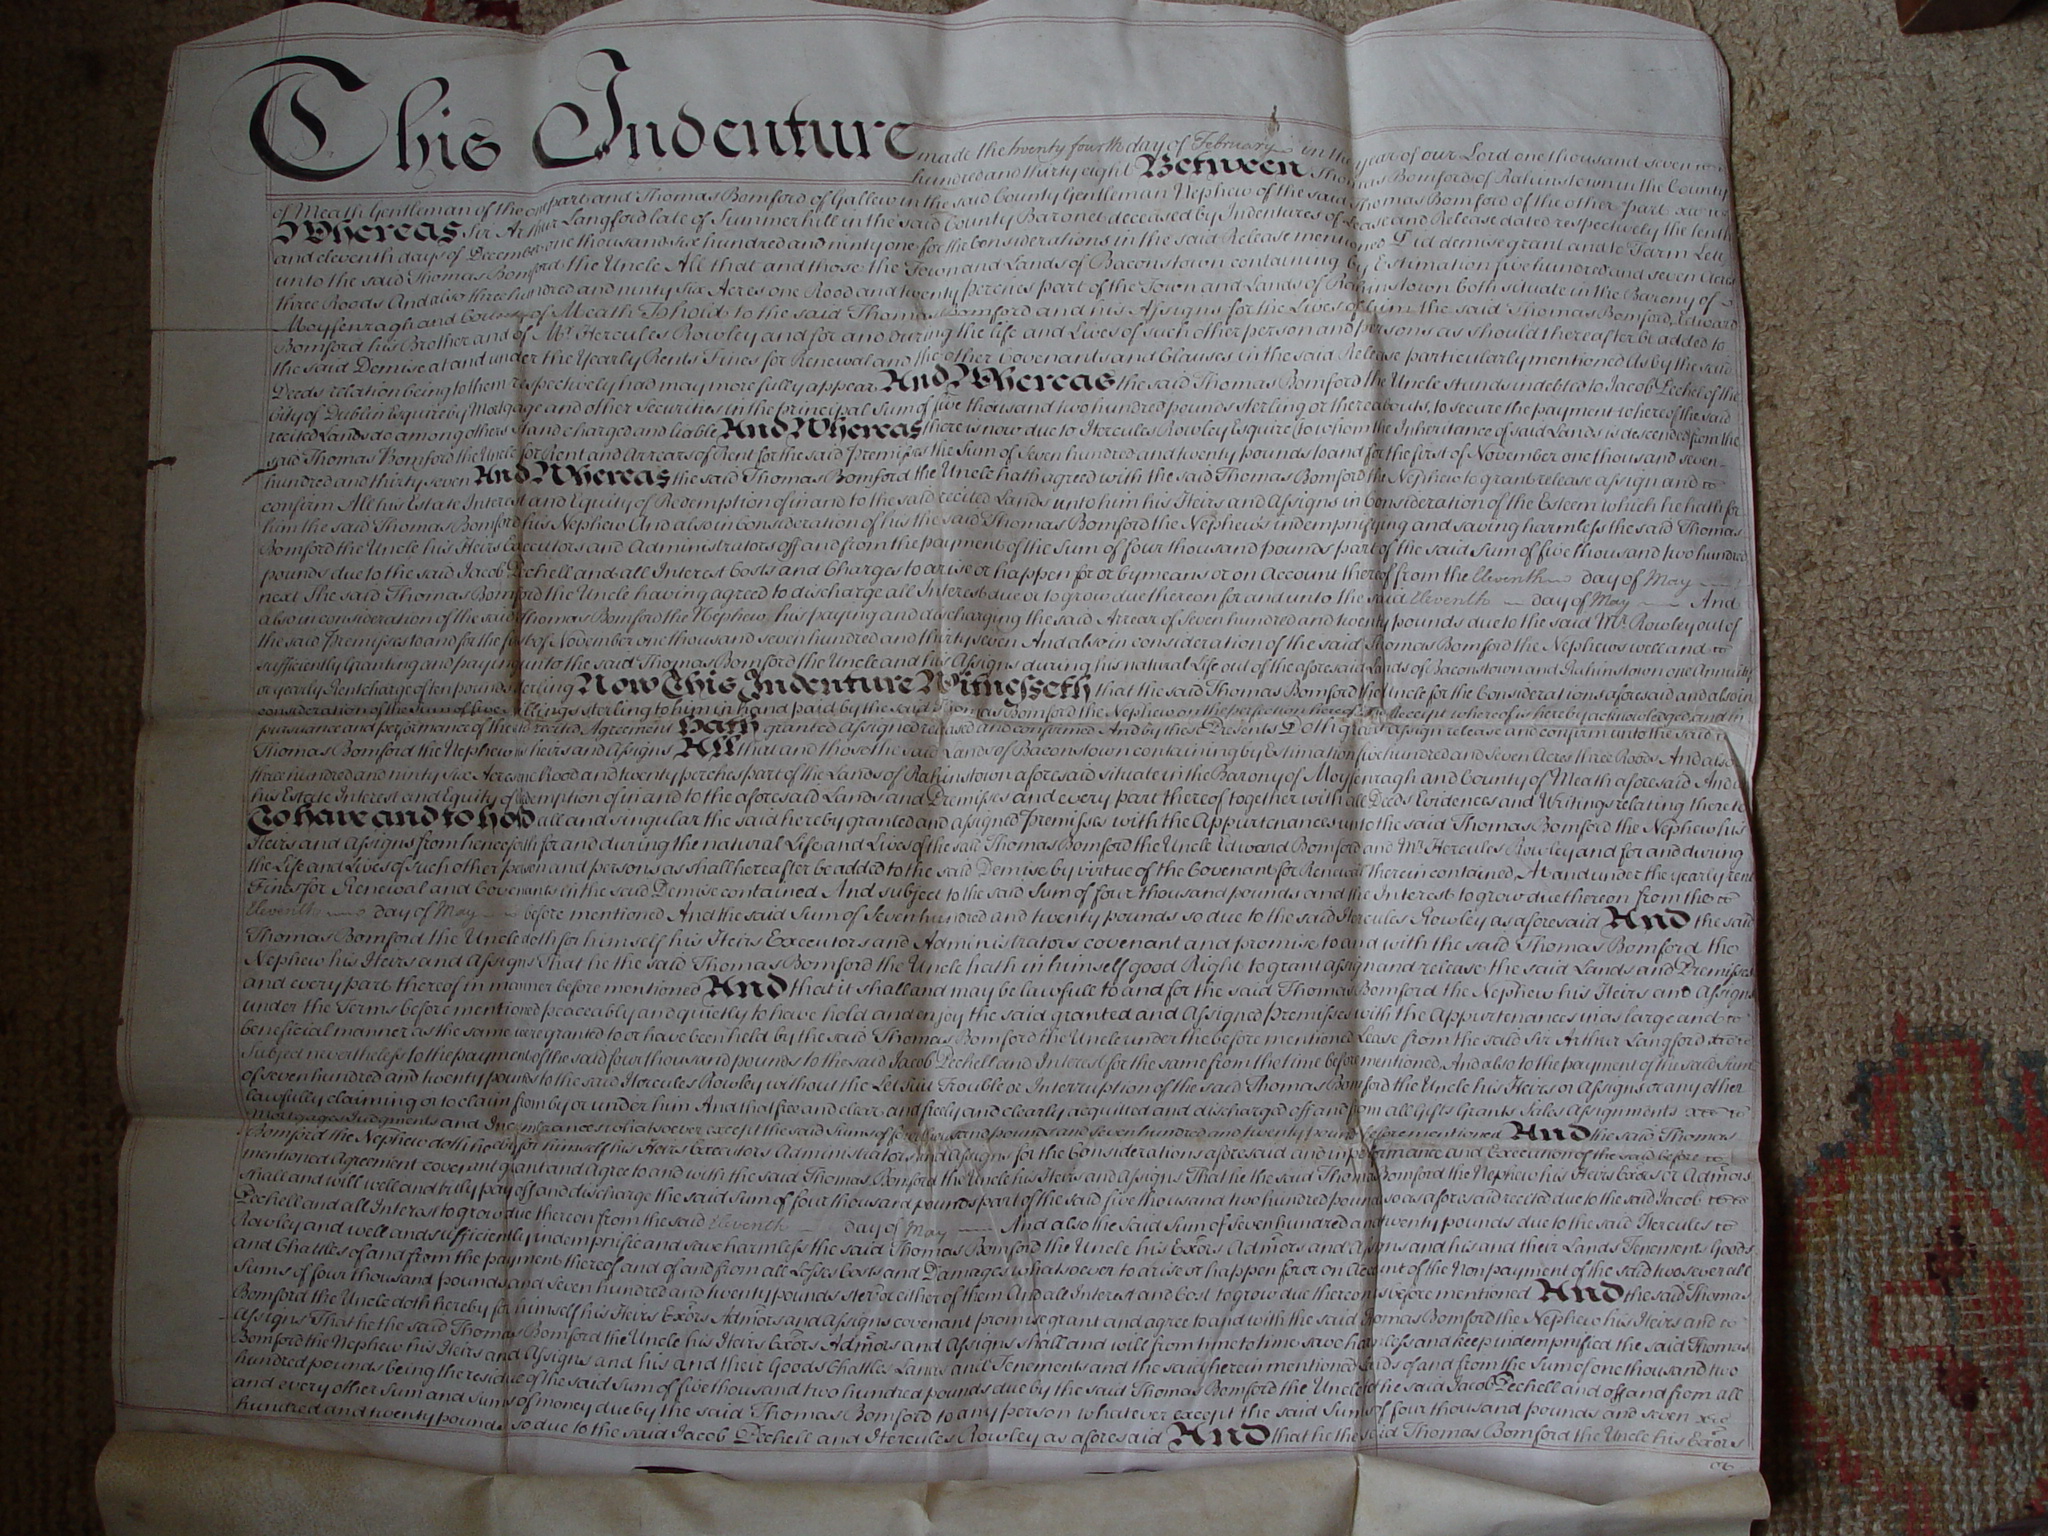 This Indenture made the twenty fourth day of February in the year of our Lord one thousand seven
hundred and thirty eight Between Thomas Bomford of Rahinstown in the County
of Meath Gentleman of the one part and Thomas Bomford of Gallow in the said County Gentleman Nephew of the said Thomas Bomford of the other part
Whereas Sir Arthur Langford late of Summerhill in the said County Baronet deceased by Indentures of Lease and Release dated respectively the tenth
and eleventh days of December one thousand six hundred and ninty one for the Considerations in the said Release mentioned Did demise grant and to Farm Lett
unto the said Thomas Bomford the Uncle All that and those the Town and Lands of Baconstown containing by Estimation five hundred and seven Acres
three Roods And also three hundred and ninty six Acres one Rood and twenty perches part of the Town and Lands of Rahinstown both situate in the Barony of
Moyfenragh and County of Meath To hold to the said Thomas Bomford and his Assigns for the Lives of him the said Thomas Bomford, Edward
Bomford his Brother and of Mr. Hercules Rowley and for and During the life and Lives of such other person and persons as should thereafter be added to
the said Demise at and under the Yearly Rents Fines for Renewal and the other Covenants and Clauses in the said Release particularly mentioned As by the said
Deeds relation being to them respectively had may more fully appear And Whereas the said Thomas Bomford the Uncle stands indebted to Jacob Pechel of the
City of Dublin Esquire by Mortgage and other Securities in the principal Sum of five thousand two hundred pounds sterling or thereabouts, to secure the payment whereof the said
recited Lands do among others stand charged and liable And Whereas there is now due to Hercules Rowley Esquire (to whom the Inheritance of said Lands is descended from the
said Thomas Bomford the Uncle for Rent and Arrears of Rent for the said Premisses the Sum of Seven hundred and twenty pounds to and for the first of November one thousand seven
hundred and thirty seven And Whereas the said Thomas Bomford the Uncle hath agreed with the said Thomas Bomford the Nephew to grant release assign and
confirm All his Estate Interest and Equity of Redemption of in and to the said recited Lands unto him his Heirs and Assigns in Consideration of the Esteem which he hath for
him the said Thomas Bomford his Nephew And also in Consideration of his the said Thomas Bomford the Nephew's indempnifying and saving harmless the said Thomas
Bomford the Uncle his Heirs Executors and Administrators off and from the payment of the Sum of four thousand pounds part of the said Sum of five thousand two hundred
pounds due to the said Jacob Pechell and all Interest Costs and Charges to arise or happen for or by means or on Account thereof from the Eleventh day of May
next The said Thomas Bomford the Uncle having agreed to discharge all Interest due or to grow due thereon for and unto the said Eleventh day of May And
also in consideration of the said Thomas Bomford the Nephew his paying and discharging the said Arrear of Seven hundred and twenty pounds due to the said Mr. Rowley out of
the said Premisses to and for the first of November one thousand seven hundred and thirty seven And also in consideration of the said Thomas Bomford the Nephews well and
sufficiently Granting and paying unto the said Thomas Bomford the Uncle and his Assigns during his natural Life out of the aforesaid Lands of Baconstown and Rahinstown one Annuity
or yearly Rentcharge of ten pounds sterling Now This Indenture Witnesseth that the said Thomas Bomford the Uncle for the Considerations aforesaid and also in
consideration of the Sum of five shillings sterling to him in hand paid by the said Thomas Bomford the Nephew on the perfection hereof the Receipt whereof is hereby acknowledged and in
pursuance and performance of the recited Agreement Hath granted Assigned released and confirmed And by these Presents Doth grant assign release and confirm unto the said
Thomas Bomford the Nephew his heirs and Assigns All that and those the said Lands of Baconstown containing by Estimation five hundred and seven Acres three Roods And also
three hundred and ninty six Acres one Rood and twenty perches part of the Lands of Rahinstown aforesaid situate in the Barony of Moyfenragh and County of Meath aforesaid And
his Estate Interest and Equity of Redemption of in and to the aforesaid Lands and Premisses and every part thereof together with all Deeds Evidences and Writings relating thereto
To have and to hold all and singular the said hereby granted and assigned Premisses with the Appurtenances unto the said Thomas Bomford the Nephew his
Heirs and Assigns from henceforth for and during the natural Life and Lives of the said Thomas Bomford the Uncle Edward Bomford and Mr. Hercules Rowley and for and during
the Life and Lives of such other person and persons as shall hereafter be added to the said Demise by virtue of the Covenant for Renewal therein contained, At and under the yearly rent
Fines for Renewal and Covenants in the said Demise contained And subject to the said Sum of four thousand pounds and the Interest to grow due thereon from the
Eleventh day of May before mentioned And the said Sum of Seven hundred and twenty pounds so due to the said Hercules Rowley as aforesaid And the said
Thomas Bomford the Uncle doth for himself his Heirs Executors and Administrators covenant and promise to and with the said Thomas Bomford the
Nephew his Heirs and Assigns That he the said Thomas Bomford the Uncle hath in himself good Right to grant assign and release the said Lands and Premisses
and every part thereof in manner before mentioned And that it shall and may be lawfull to and for the said Thomas Bomford the Nephew his Heirs and Assigns
under the Terms before mentioned peaceably and quietly to have hold and enjoy the said granted and Assigned Premisses with the Appurtenances in as large and
beneficial manner as the same were granted to or have been held by the said Thomas Bomford the Uncle under the before mentioned Lease from the said Sir Arthur Langford
Subject nevertheless to the payment of the said four thousand pounds to the said Jacob Pechell and Interest for the same from the time before mentioned. And also to the payment of the said Sum
of seven hundred and twenty pounds to the said Hercules Rowley without the Let Suit Trouble or Interruption of the said Thomas Bomford the Uncle his Heirs or Assigns or any other
lawfully claiming or to claim from by or under him And that free and clear and freely and clearly acquitted and discharged off and from all Gifts Grants Sales Assignments
Mortgages Judgments and Incumbrances whatsoever except the said Sums of four thousand pounds and seven hundred and twenty pounds before mentioned And the said Thomas
Bomford the Nephew doth hereby for himself his Heirs Executors Administrators and Assigns for the Considerations aforesaid and in performance and Execution of the said before
mentioned Agreement covenant grant and Agree to and with the said Thomas Bomford the Uncle his Heirs and Assigns That he the said Thomas Bomford the Nephew his Heirs Exors or Admors
shall and will well and truly pay off and discharge the said Sum of four thousand pounds part of the said five thousand two hundred pounds so as aforesaid recited due to the said Jacob
Pechell and all Interest to grow due thereon from the said Eleventh day of May And also the said Sum of Seven hundred and twenty pounds due to the said Hercules
Rowley and well and sufficiently indempnifie and save harmless the said Thomas Bomford the Uncle his Exors Admors and Assigns and his and their Lands Tenements Goods
and Chattles of and from the payment thereof and of and from all Losses Costs and Damages whatsoever to arise or happen for or on Account of the Non payment of the said two severall
Sums of four thousand pounds and seven hundred and twenty pounds ster or either of them And all Interest and Cost to grow due thereon as before mentioned And the said Thomas
Bomford the Uncle doth hereby for himself his Heirs Exors Admors and Assigns covenant promise grant and agree to and with the said Thomas Bomford the Nephew his Heirs and
Assigns That he the said Thomas Bomford the Uncle his Heirs Exors Admors and Assigns shall and will from time to time save harmless and keep indempnified the said Thomas
Bomford the Nephew his Heirs and Assigns and his and their Goods Chattles Lands and Tenements and the said herein mentioned Lands of and from the Sum of one thousand two
hundred pounds being the residue of the said Sum of five thousand two hundred pounds due by the said Thomas Bomford the Uncle to the said Jacob Pechell and off and from all
and every other Sum and Sums of money due by the said Thomas Bomford to any person whatever except the said Sums of four thousand pounds and seven
hundred and twenty pounds so due to the said Jacob Pechell and Hercules Rowley as aforesaid And that he the said Thomas Bomford the Uncle his Exors